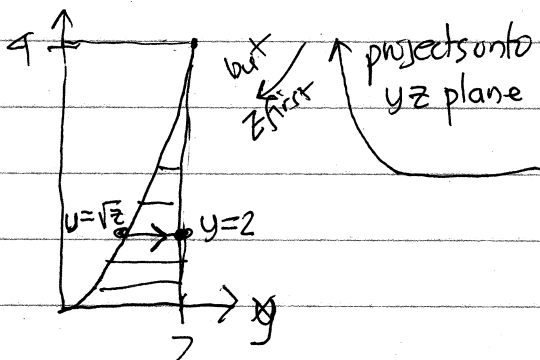 4
but
z first
projects onto
yz plane
y=√z
y=2
y
2